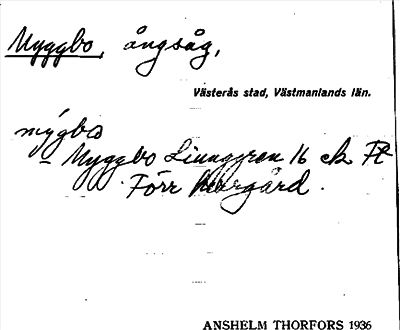 Myggbo, ångsåg,
Västerås stad, Västmanlands län.
mýgbω
– Myggbo Linnggren 16 ek Fℓ
Förr herrgård.
ANSHELM THORFORS 1936